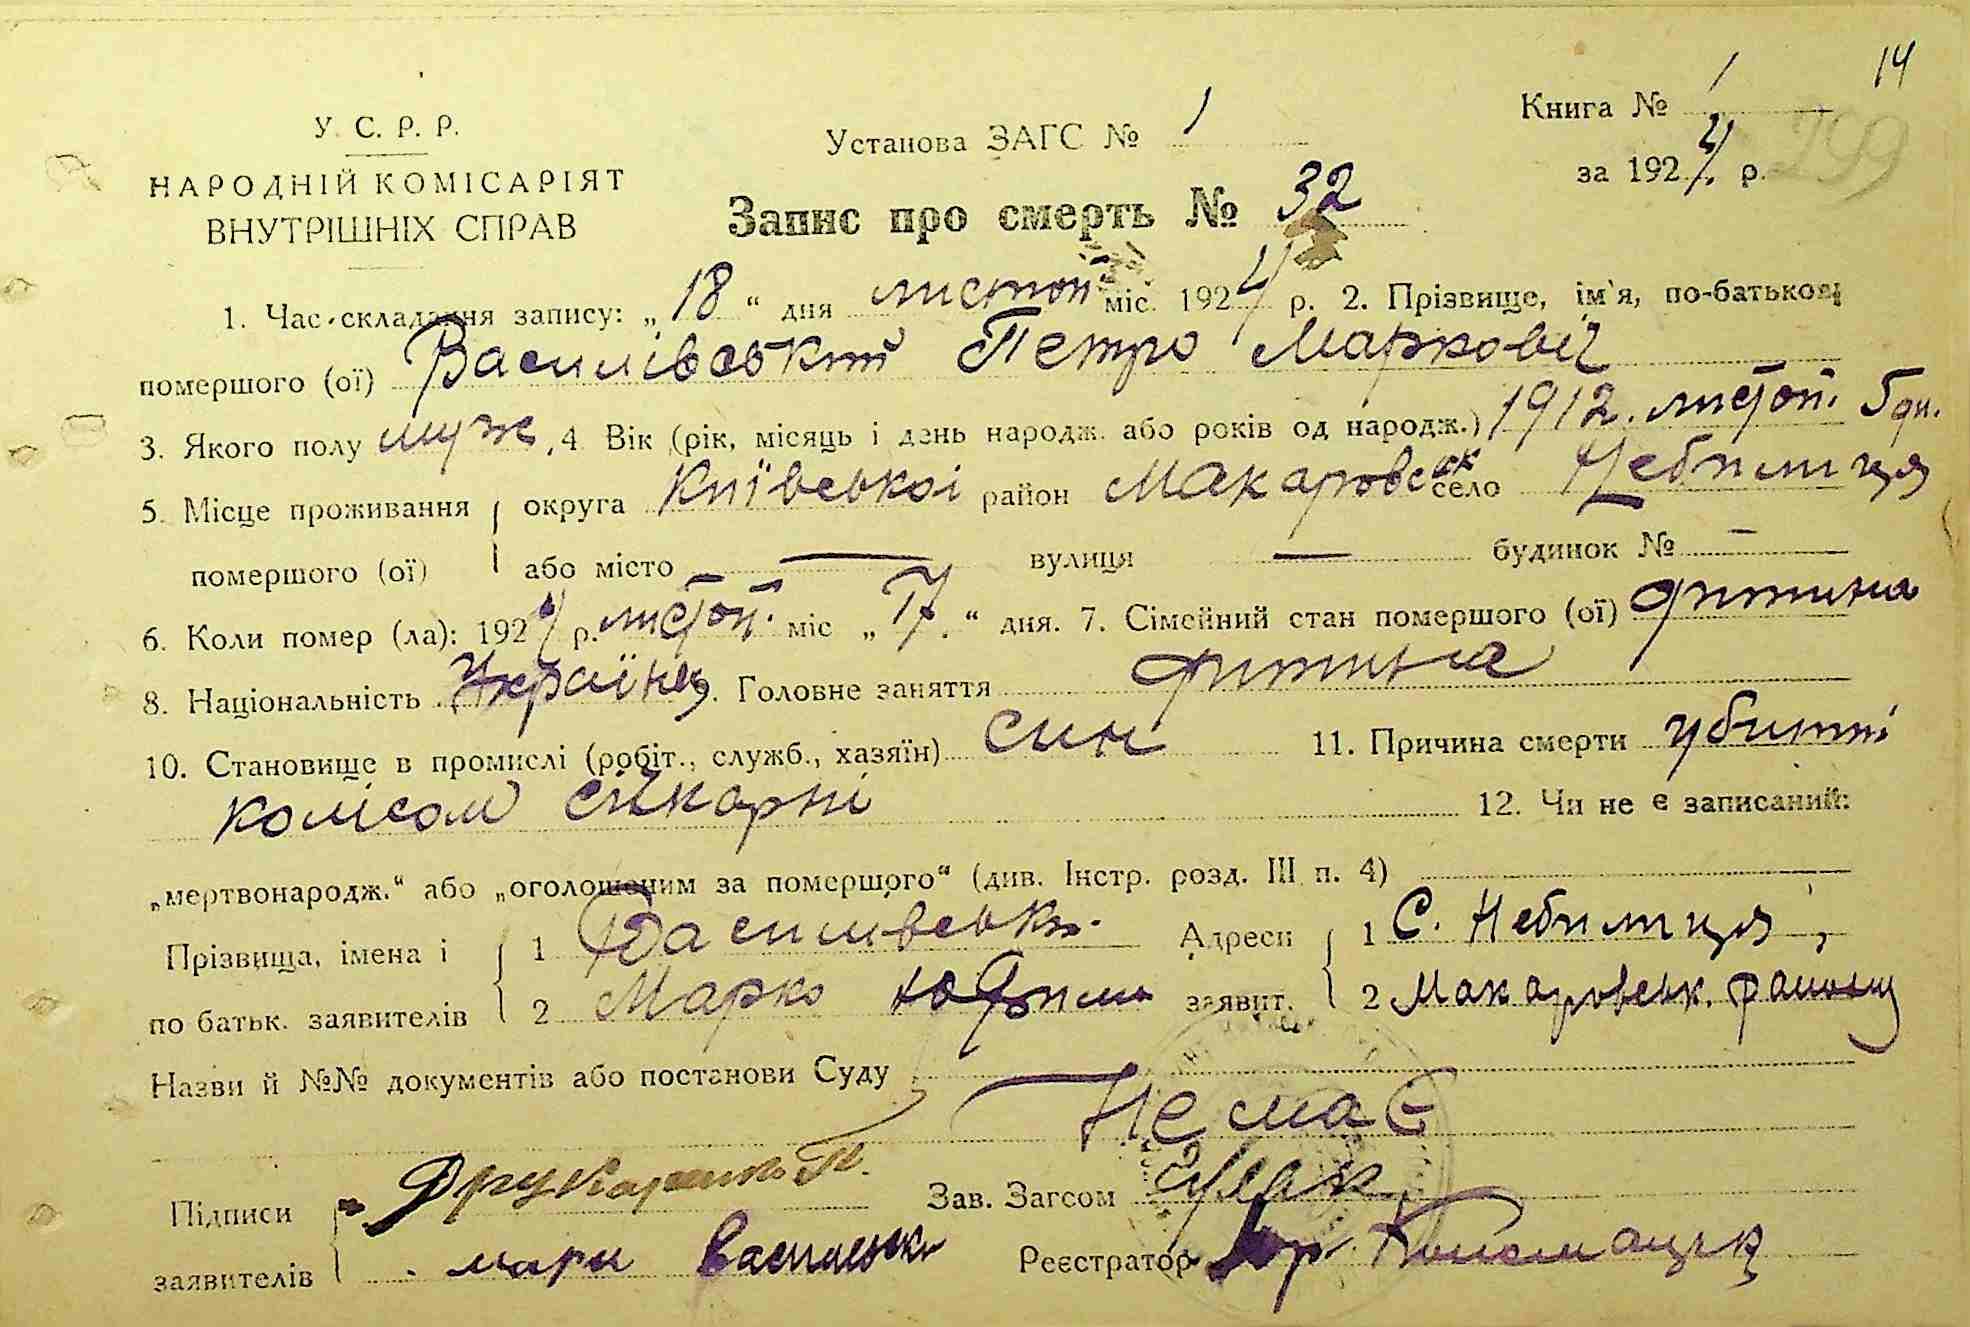 14
У. С. Р. Р.
Установа ЗАГС № 1
Книга № 1
НАРОДНІЙ КОМІСАРІЯТ
ВНУТРІШНІХ СПРАВ
за 1924 р. 299
Запис про смерть № 32
1. Час складання запису: „18“ дня листоп міс. 1924 р. 2. Прізвище, ім'я, по-батькові
помершого (ої) Василівський Петро Маркович
3. Якого полу муж. 4. Вік (рік, місяць і день народж. або років од народж.) 1912. листоп. 5 дн.
5. Місце проживання округа Київської район Макаровськ село Небилиця
помершого (ої) або місто — вулиця — будинок № —
6. Коли помер (ла): 1924 р. листоп. міс „17.“ дня. 7. Сімейний стан помершого (ої) дитина
8. Національність Українец. Головне заняття дитина
10. Становище в промислі (робіт., служб., хазяїн) син 11. Причина смерти убитий
колісом січкарні 12. Чи не є записаний:
„мертвонародж.“ або „оголошеним за помершого“ (див. Інстр. розд. III п. 4)
Прізвища, імена і 1 Василівськ. Адреси 1 С. Небилиця,
по батьк. заявителів 2 Марко заявит. 2 Макаровськ. району
Назви й №№ документів або постанови Суду
Немає
Підписи Друкаренко П. Зав. Загсом
заявителів Реєстратор